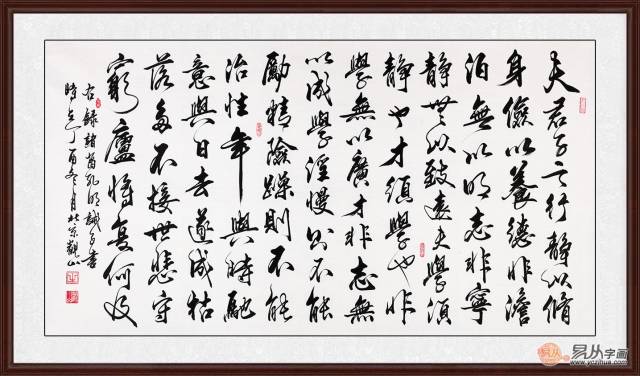 夫君子之行靜以脩
身儉以養德非澹
泊無以明志非寧
靜無以致遠夫學須
靜也才須學也非
學無以廣才非志無
以成學淫慢則不能
勵精險躁則不能
治性年與時馳
意與日去遂成枯
落多不接世悲守
窮廬將復何及
右錄諸葛孔明誡子書
時在丁酉冬月 京觀山
易从 易从字画
www.yczihua.com